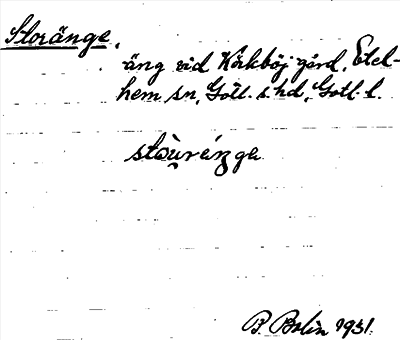 Storänge,
äng vid Kräkböj gård, Etel-
hem sn, Gotl. s. hd, Gotl. l.
stòu̯ränga
B. Bolin 1931.